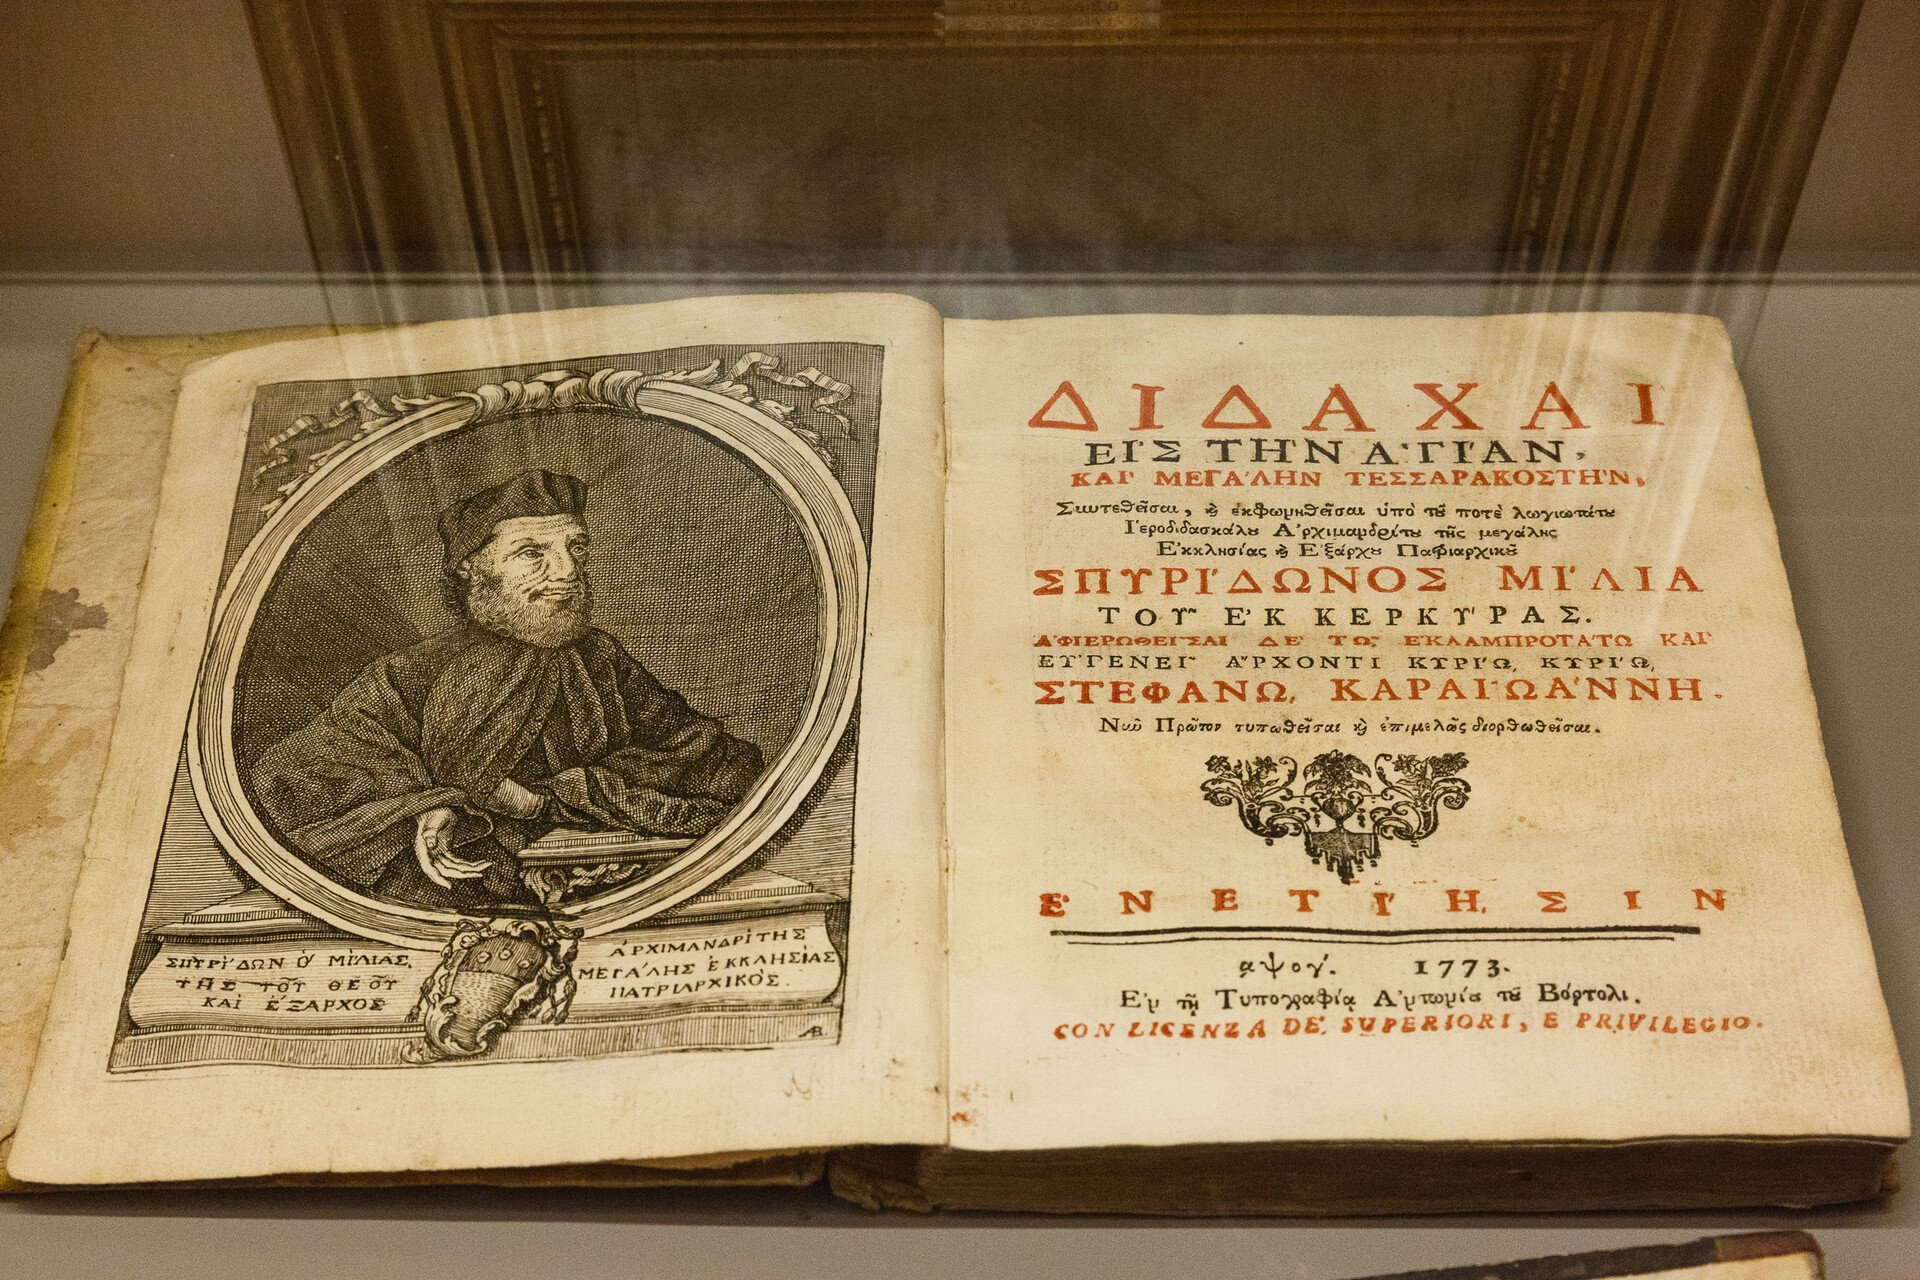 ΣΠΥΡΊΔΩΝ Ὁ ΜΊΛΙΑΣ,
ΤῊΣ ΤΟΥ͂ ΘΕΟΥ͂
ΚΑῚ ἜΞΑΡΧΟΣ
ἈΡΧΙΜΑΝΔΡΊΤΗΣ
ΜΕΓΆΛΗΣ ἘΚΚΛΗΣΊΑΣ
ΠΑΤΡΙΑΡΧΙΚῸΣ.
ΔΙΔΑΧΑΙ
ΕΙ᾿Σ ΤΗ᾿Ν Α῾ΓΙ΄ΑΝ,
ΚΑΙ᾿ ΜΕΓΑ΄ΛΗΝ ΤΕΣΣΑΡΑΚΟΣΤΗ΄Ν,
Συντεθεῖσαι, ϗ ἐκφωνηθεῖσαι ὑπὸ τȣ͂ ποτὲ λωγιωτάτȣ
Ἱεροδιδασκάλȣ Ἀρχιμανδρίτȣ τῆς μεγάλης
Ἐκκλησίας ϗ Ἐξάρχȣ Πατριαρχικȣ͂
ΣΠΥΡΙ΄ΔΩΝΟΣ ΜΙ΄ΛΙΑ
ΤΟΥ͂ Ε᾿Κ ΚΕΡΚΥ΄ΡΑΣ.
Α᾿ΦΙΕΡΩΘΕΙ͂ΣΑΙ ΔΕ᾿ Τῼ͂ Ε᾿ΚΛΑΜΠΡΟΤΑ΄ΤΩ ΚΑΙ᾿
ΕΥ᾿ΓΕΝΕΙ͂ Α῎ΡΧΟΝΤΙ ΚΥΡΙ΄Ω, ΚΥΡΙ΄Ω,
ΣΤΕΦΑΝΩ, ΚΑΡΑΪΩΑ΄ΝΝΗ.
Νῦν Πρῶτον τυπωθεῖσαι ϗ ἐπιμελῶς διορθωθεῖσαι.
Ε᾿ΝΕΤΙ΄ΗΣΙΝ
͵αψογʹ. 1773.
Ἐν τῇ Τυπογραφίᾳ Ἀντωνίȣ τȣ͂ Βόρτολι.
CON LICENZA DE' SUPERIORI, E PRIVILEGIO.